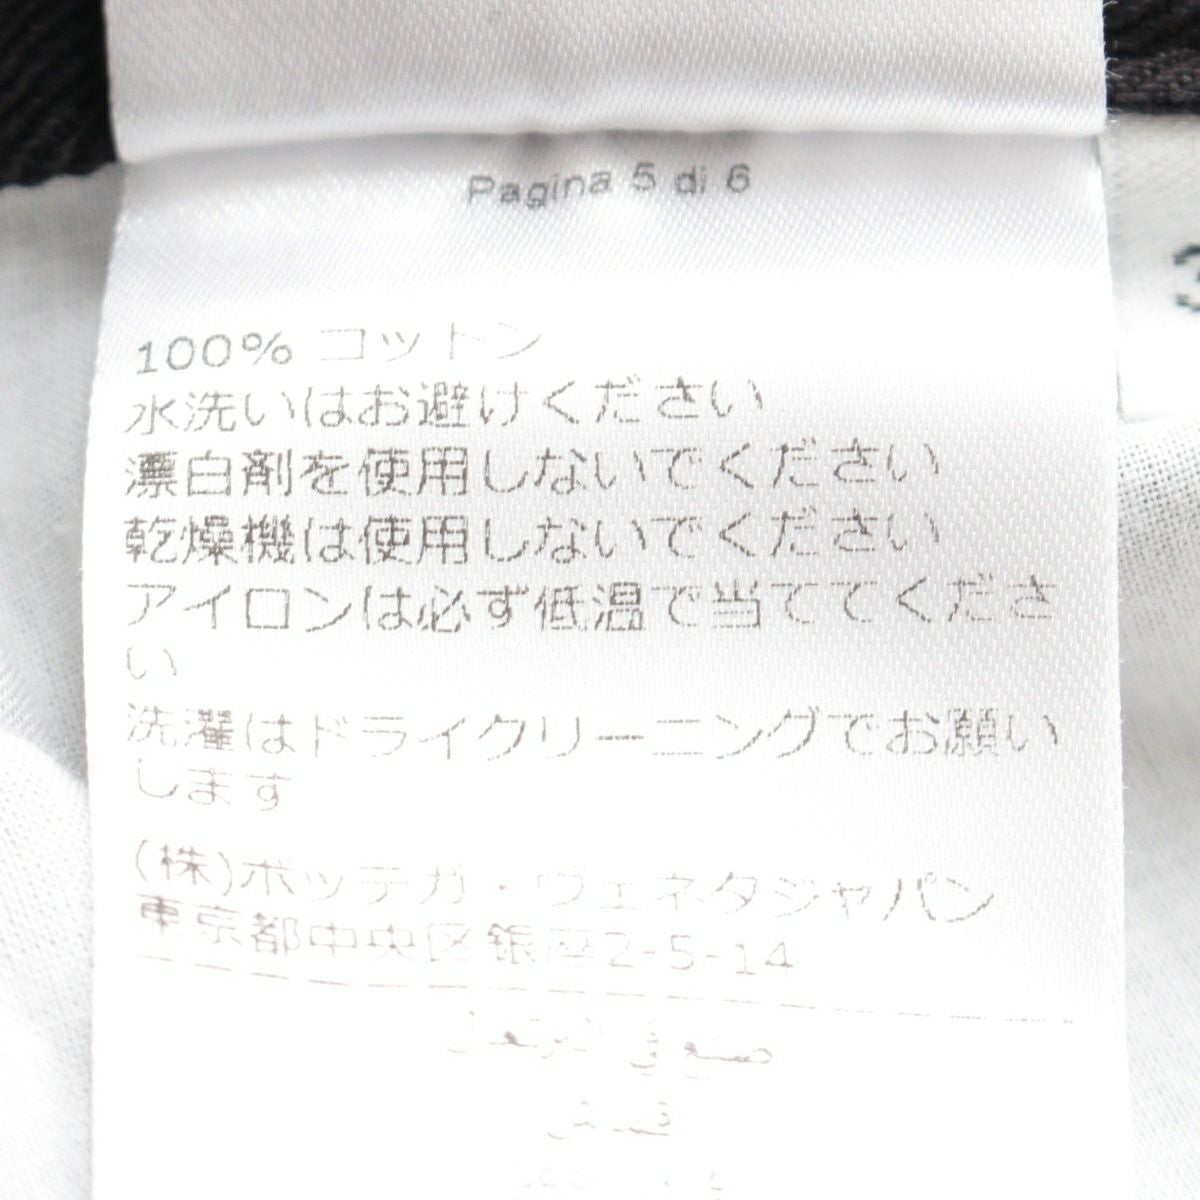 Pagina 5 di 6
100% コットン
水洗いはお避けください
漂白剤を使用しないでください
乾燥機は使用しないでください
アイロンは必ず低温で当ててくださ
い
洗濯はドライクリーニングでお願い
します
(株)ボッテガ・ヴェネタジャパン
東京都中央区銀座2-5-14
صنع في البرتغال
3